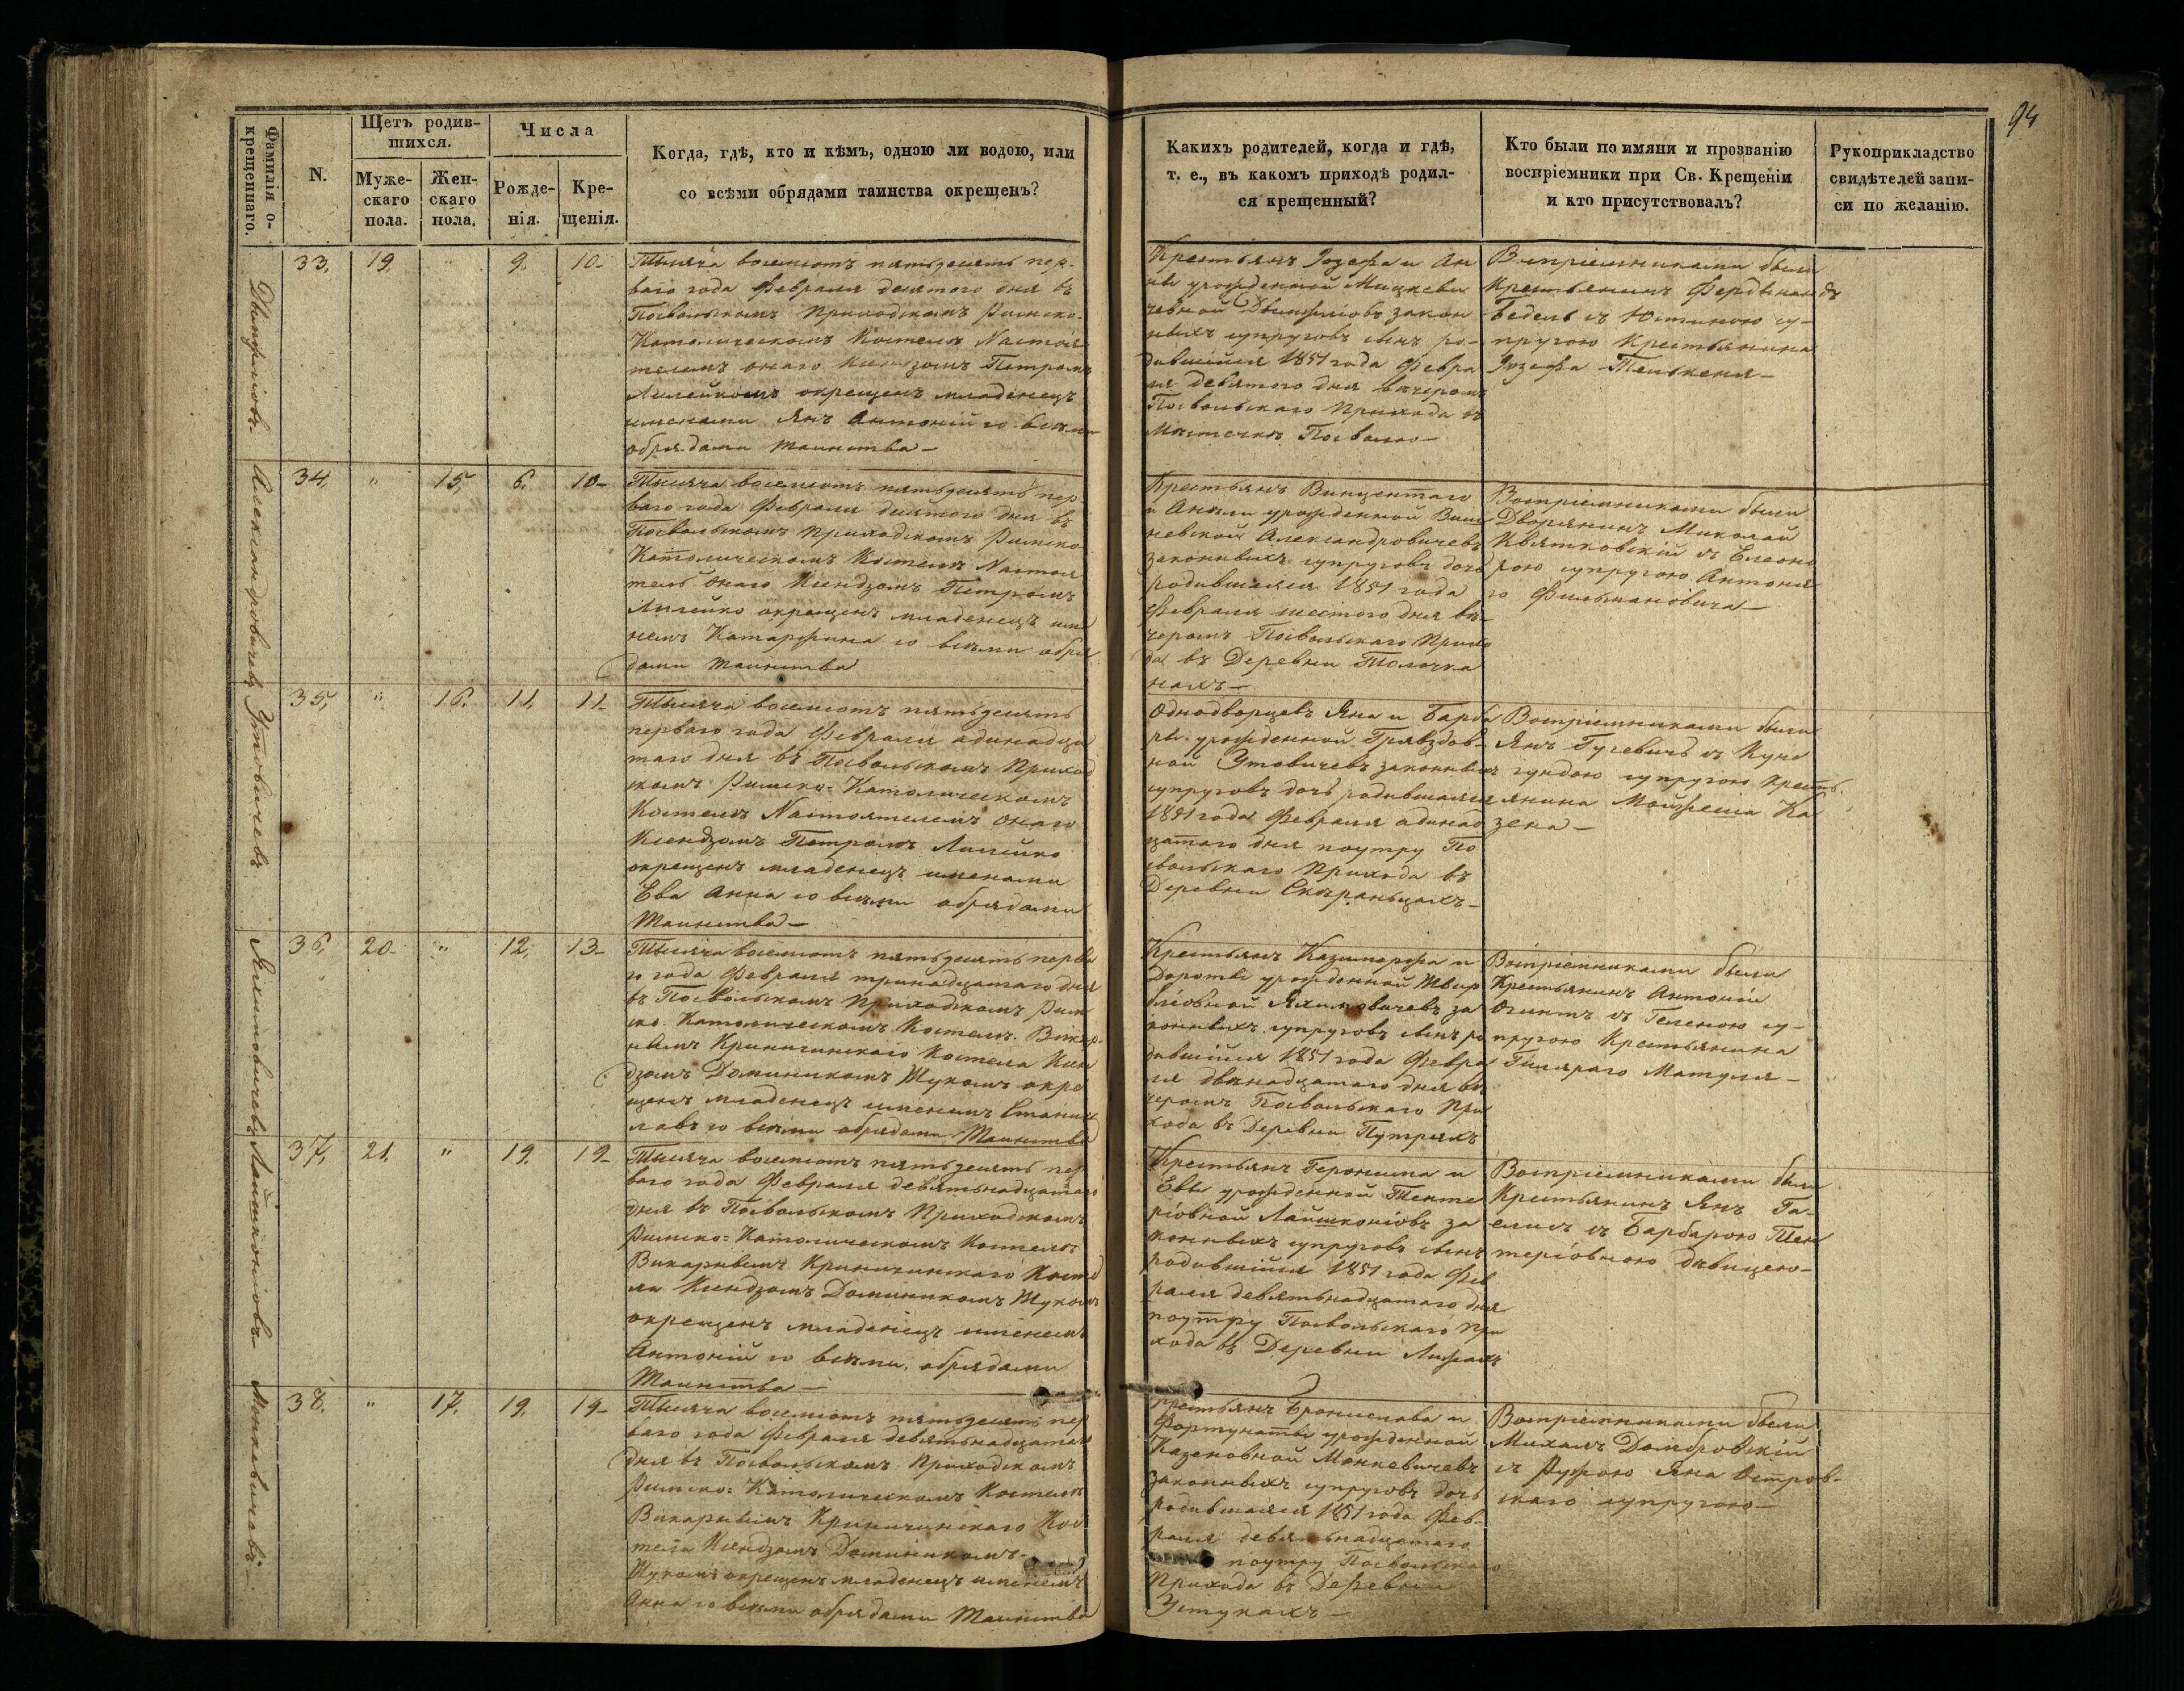 94
Фамилія о-
крещеннаго.
N.
Щетъ родив-
шихся.
Муже-
скаго
пола.
Жен-
скаго
пола.
Числа
Рожде-
нія.
Кре-
щенія.
Когда, гдѣ, кто и кѣмъ, одною ли водою, или
со всѣми обрядами таинства окрещенъ?
Какихъ родителей, когда и гдѣ,
т. е., въ какомъ приходѣ родил-
ся крещенный?
Кто были по имяни и прозванію
воспріемники при Св. Крещеніи
и кто присутствовалъ?
Рукоприкладство
свидѣтелей запи-
си по желанію.
33. 19. 9. 10-
Тысяча восемсотъ пятьдесятъ пер-
ваго года Февраля десятого дня въ
Посвольскомъ Приходскомъ Римско-
Католическомъ Костелѣ Настоя
телемъ онаго Ксендзомъ Петромъ
окрещенъ младенецъ
именами Янъ Антоній со всѣми
обрядами таинства-
Крестьянъ Іозефа и Ан
ны урожденной Мицкеви
чевной закон
ныхъ супруговъ сынъ ро-
дившійся 1851 года Февра
ля девятого дня вечеромъ
Посвольскаго Прихода въ
Мѣстечкѣ Посволю-
Воспріемниками были
Крестьянинъ Фердинандъ
Бедель съ Юстиною су-
пругою Крестьянина
Іозефа
34. " 15. 6. 10-
Александровичевъ
Тысяча восемсотъ пятьдесятъ пер
ваго года Февраля десятого дня въ
Посвольскомъ Приходскомъ Римско
Католическомъ Костелѣ Настоя
тель онаго Ксендзомъ Петромъ
окрещенъ младенецъ име
немъ Катаржина со всѣми обря
дами таинства
Крестьянъ Винцентаго
и Анѣли урожденной Виш
невской Александровичевъ
законныхъ супруговъ дочь
родившаяся 1851 года
Февраля шестого дня ве-
черомъ Посвольскаго Прихо
да въ Деревни Толочка
нахъ-
Воспріемниками были
Дворянинъ Миколай
Квятковскій съ Елеоно
рою супругою Антонія
го
35. " 16. 11. 11-
Утовичевъ
Тысяча восемсотъ пятьдесятъ
перваго года Февраля одинадца
таго дня въ Посвольскомъ Приход
скомъ Римско-Католическомъ
Костелѣ Настоятелемъ онаго
Ксендзомъ Петромъ
окрещенъ младенецъ именами
Ева Анна со всѣми обрядами
таинства-
Однодворцевъ Яна и Барба
ры урожденной
ной Утовичевъ законныхъ
супруговъ дочь родившаяся
1851 года Февраля одинад
цатаго дня поутру По
свольскаго Прихода въ
Деревни
Воспріемниками были
Янъ Гуевичъ съ Куне
гундою супругою Кресть
янина Мойжеша Ка
зена-
36. 20. " 12. 13-
Якимовичевъ
Тысяча восемсотъ пятьдесятъ перва
го года Февраля тринадцатаго дня
въ Посвольскомъ Приходскомъ Рим
ско Католическомъ Костелѣ Викар-
нымъ Криничинскаго Костела Ксен
дзомъ Доминикомъ Жукомъ окре
щенъ младенецъ именемъ Станис
лавъ со всѣми обрядами Таинства
Крестьянъ Казимержа и
Дороты урожденной
Якимовичевъ за
конныхъ супруговъ сынъ ро
дившійся 1851 года Февра
ля двѣнадцатаго дня ве
черомъ Посвольскаго При
хода въ Деревни Путряхъ
Воспріемниками были
Крестьянинъ Антоній
съ Геленою су-
пругою Крестьянина
Гиляраго Матуля-
37. 21. " 19. 19-
Лайшконіовъ
Тысяча восемсотъ пятьдесятъ пер
ваго года Февраля девятьнадцатаго
дня въ Посвольскомъ Приходскомъ
Римско-Католическомъ Костелѣ
Викарнымъ Криничинскаго Косте
ла Ксендзомъ Доминикомъ Жукомъ
окрещенъ младенецъ именемъ
Антоній со всѣми обрядами
Таинства-
Крестьянъ Геронима и
Евы урожденной Тенте
ріовной Лайшконіовъ за
конныхъ супруговъ сынъ
родившійся 1851 года Фев
раля девятьнадцатаго дня
поутру Посвольскаго При
хода въ Деревни
Воспріемниками были
Крестьянинъ Янъ Га-
елисъ съ Барбарою Тен
теріовною дѣвицею-
38. " 17. 19. 19-
Монкевичовъ-
Тысяча восемсотъ пятьдесятъ пер
ваго года Февраля девятьнадцатаго
дня въ Посвольскомъ Приходскомъ
Римско-Католическомъ Костелѣ
Викарнымъ Криничинскаго Кос
тела Ксендзомъ Доминикомъ-
Жукомъ окрещенъ младенецъ именемъ
Анна со всѣми обрядами Таинства
Крестьянъ Бронислава и
Фортунаты урожденной
Казеновной Монкевичевъ
законныхъ супруговъ дочь
родившаяся 1851 года Фев-
раля девятьнадцатаго
поутру Посвольскаго
Прихода въ Деревни
Устукахъ-
Воспріемниками были
Михалъ Домбровскій
съ Яна Остров-
скаго супругою-